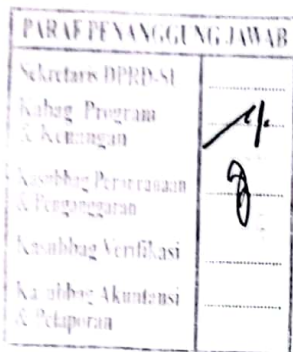 PARAF PENANGGUNG JAWAB
Sekretaris DPRD-SI
Kabag Program
& Keuangan
Kasubbag Perencanaan
& Penganggaran
Kasubbag Verifikasi
Kasubbag Akuntansi
& Pelaporan